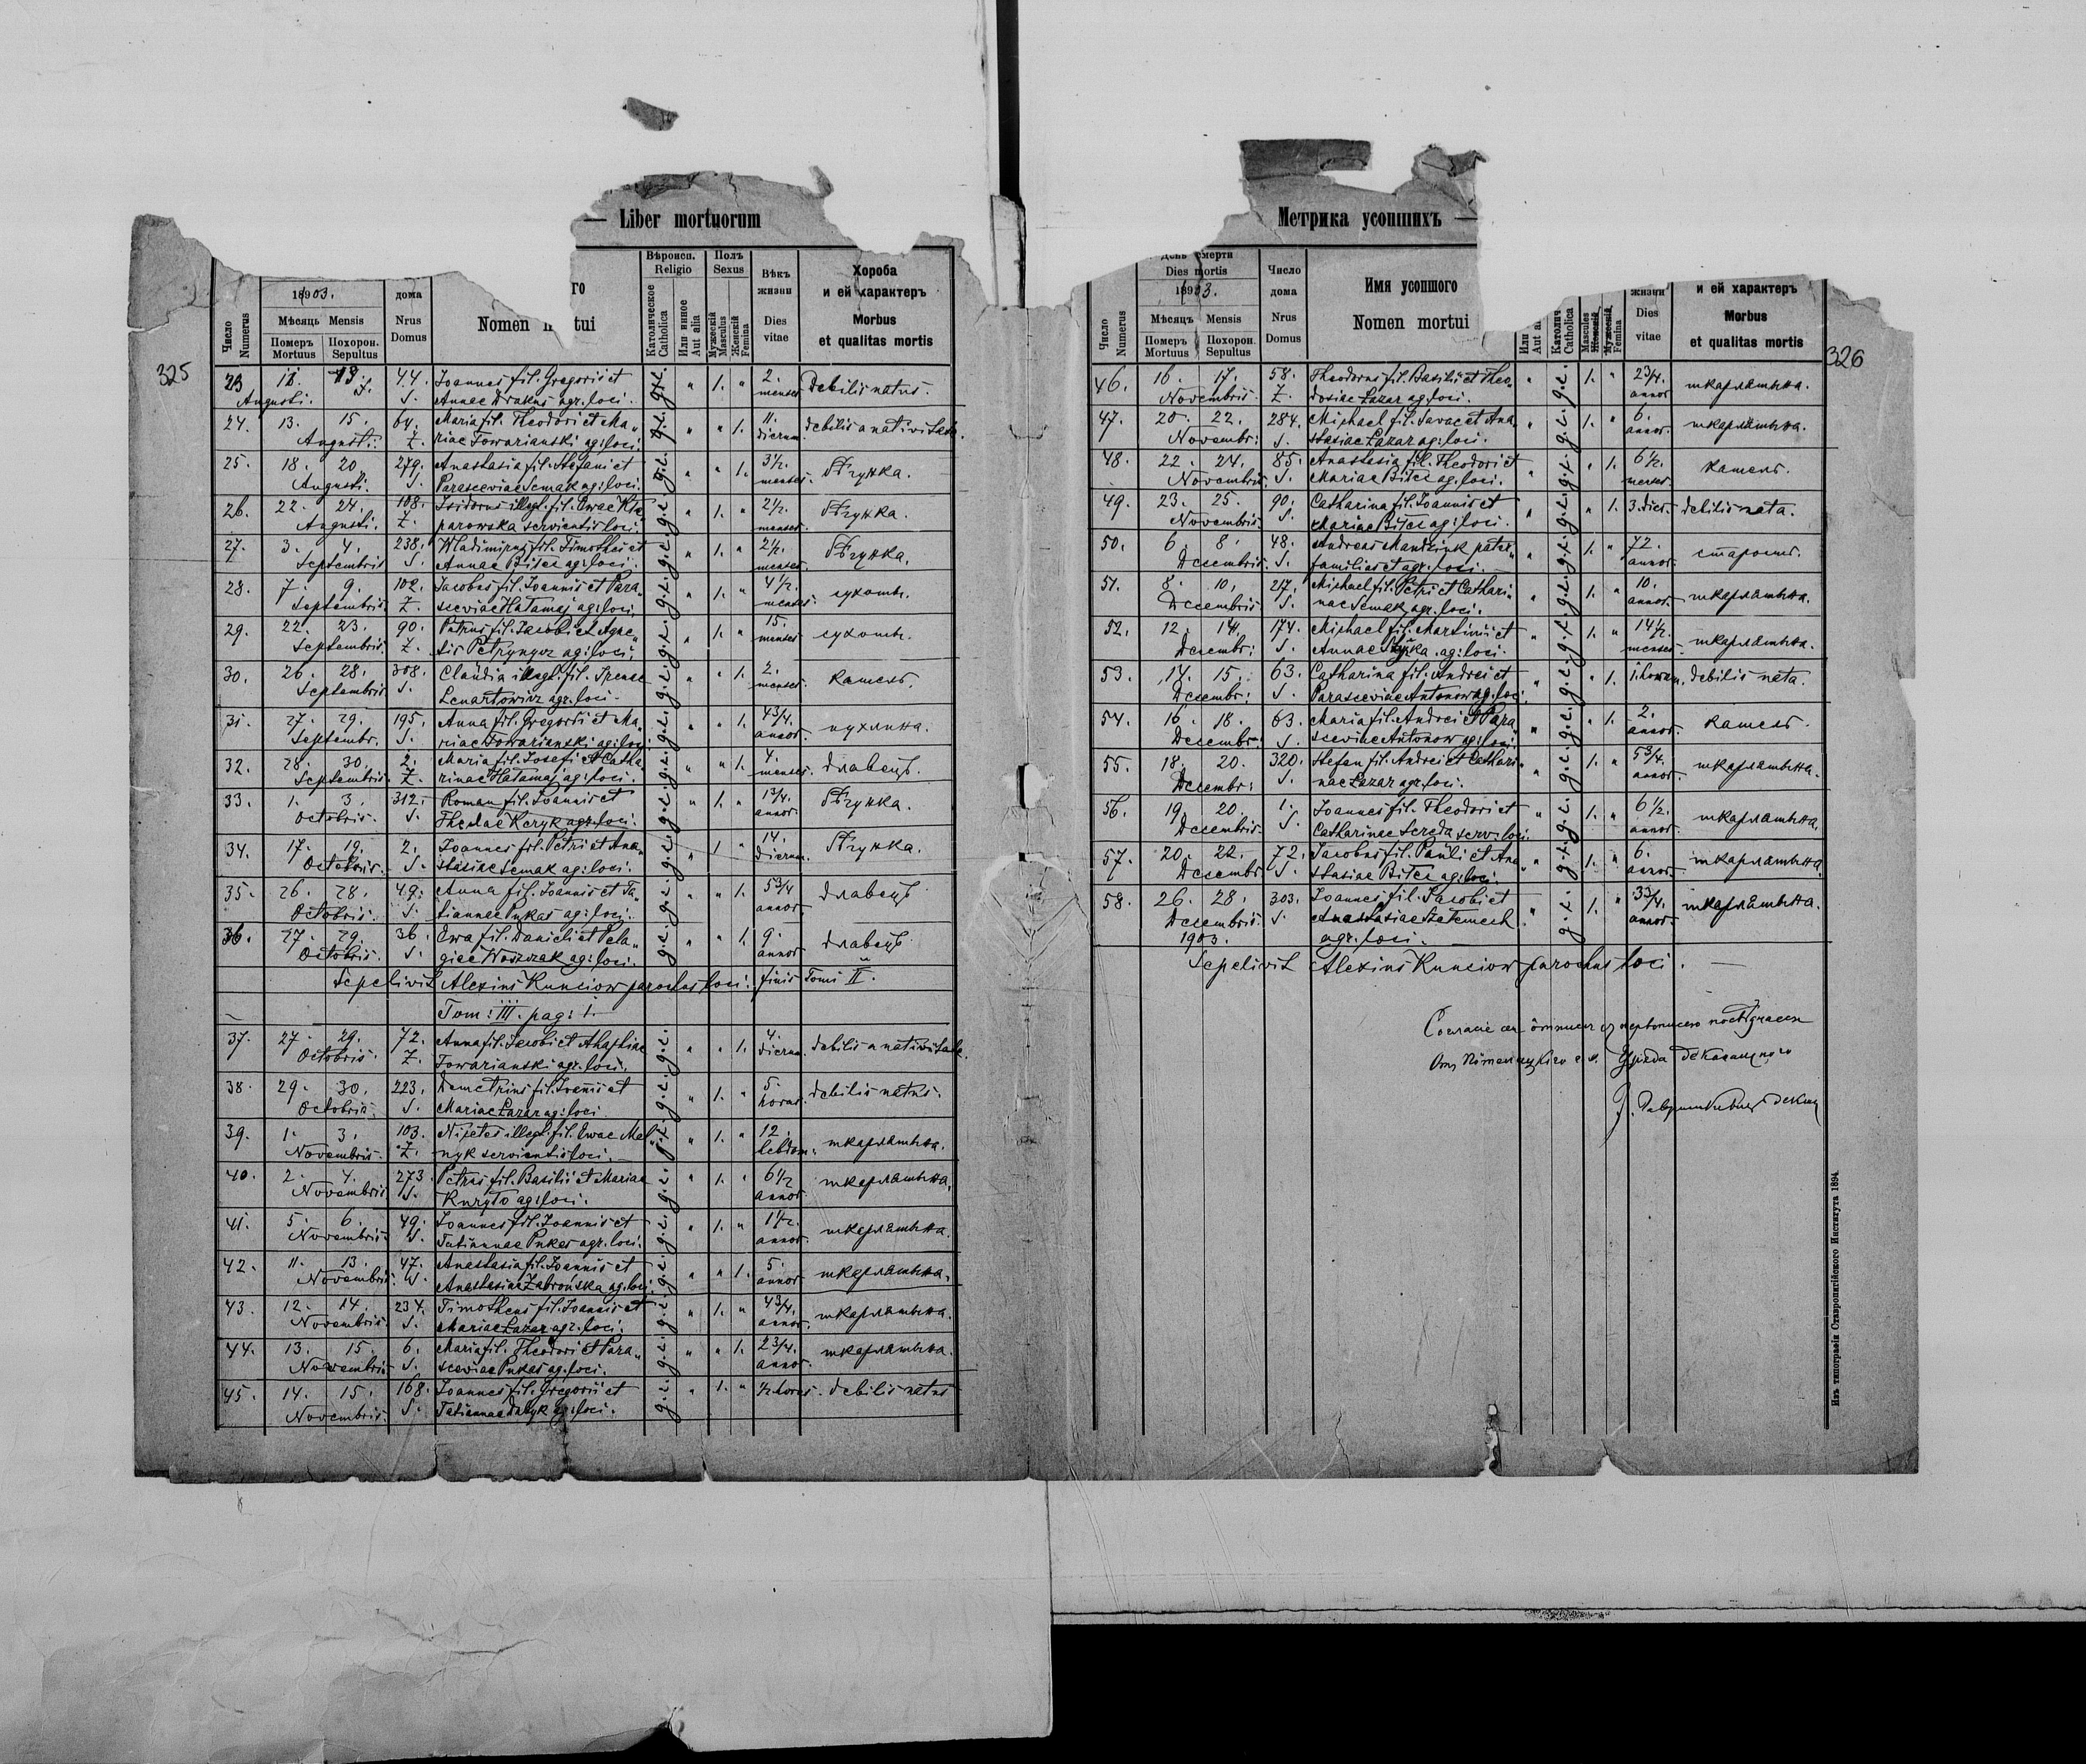 325
— Liber mortuorum
Число Numerus
1903.
Мѣсяць Mensis
Померъ Mortuus
Похорон. Sepultus
дома Nrus Domus
го
Nomen m tui
Вѣроисп. Religio
Католическое Catholica
Или инное Aut alia
Полъ Sexus
Мужескій Masculus
Женскій Femina
Вѣкъ жизни Dies vitae
Хороба и ей характеръ
Morbus et qualitas mortis
23 Augusti. 44. S. Joannes fil. Gregorii et " 1. " 2. menses Debilis natus.
Annae agr. loci.
24. 13. 15. 64. Maria fil. Theodori et Ma„ g.c. " " 1. 11. dierum debilis a nativitate.
Augusti. Z. riae Towarianski ag: loci.
25. 18. 20. 279. Anastasia fil. Stefani et g.c. " " 1. 3½ menses.
Augusti. S. Parasceviae Semak ag: loci.
26. 22. 24. 108. Isidorus illegt. fil. Ewae g.c. " 1. " 2½ menses.
Augusti. Z. parowska servientis loci.
27. 3. 4. 238. Wladimirus fil. Timothei et g.c. " 1. " 2½ menses.
Septembris S. Annae ag: loci.
28. 7. 9. 102. Jacobus fil. Joannis et Para„ g.c. " 1. " 4½ menses. сухоты.
Septembris. Z. sceviae Hatamaj ag: loci.
29. 22. 23. 90. Petrus fil. Jacobi et Agne„ g.c. " 1. " 15. menses сухоты.
Septembris. Z. tis ag: loci.
30. 26. 28. 308. Claudia illegt. fil. Irenae g.c. " " 1. 2. menses. кашель.
Septembris S. Lenartowicz agr. loci.
31. 27. 29. 195. Anna fil. Gregorii et Ma„ g.c. " " 1. 4¾ annor. пухлина.
Septembr. S. riae Towarianski ag: loci.
32. 28. 30. 2. Maria fil. Josefi et Catha„ g.c. " " 1. 4. menses. давець.
Septembris. Z. rinae Hatamaj ag: loci.
33. 1. 3. 312. Roman fil. Joannis et g.c. " 1. " 1¾. annor.
Octobris. S. Theclae Keryk agr. loci.
34. 17. 19. 2. Joannes fil. Petri et Ana„ g.c. " 1 " 14. dierum.
Octobris. S. stasiae Semak ag: loci.
35. 26. 28. 49. Anna fil. Joannis et Ta„ g.c. " " 1. 5¾ annor. давець
Octobris. S. tiannae Pukas ag: loci.
36. 27. 29. 36. Ewa fil. Danieli et Pela„ g.c. " " 1. 9. annor давець
Octobris. S. giae Woszczak ag: loci.
Sepelivit Alexius Kunciow parochus loci. finis Tomi II.
Tom: III. pag: 1.
37. 27. 29. 72. Anna fil. Jacobi et g.c. " " 1. 4. dierum. debilis a nativitate.
Octobris. Z. Towarianski agr. loci.
38. 29. 30. 223. Demetrius fil. Joannis et g.c. " 1. " 5. horas. debilis natus.
Octobris. S. Mariae Lazar ag: loci
39. 1. 3. 103. illegt. fil. Ewae Mel„ " 1. " 12. hebdom. шкарлятына.
Novembris. Z. nyk servientis loci.
40. 2. 4. 273. Petrus fil. Basilii et Mariae g.c. " 1. " 6½ annor. шкарлятына.
Novembris S. Kuryło ag: loci.
41. 5. 6. 49. Joannes fil. Joannis et g.c. " 1. " 1½. annor. шкарлятына.
Novembris. Tatiannae Pukas agr. loci.
42. 11. 13. 47. Anastasia fil. Joannis et g.c. " " 1. 5. annor шкарлятына.
Novembris. Anastasiae Zabrońska ag: loci.
43. 12. 14. 234. Timotheus fil. Joannis et g.c. " 1. " 4¾. annor. шкарлятына.
Novembris. S. Mariae Lazar agr. loci.
44. 13. 15. 6. Maria fil. Theodori et Para„ g.c. " " 1. 2¾. annor. шкарлятына.
Novembris. S. sceviae Pukas ag: loci.
45. 14. 15. 168. Joannes fil. Gregorii et g.c. " 1. " ½ horas. debilis natus
Novembris. S. Tatiannae ag: loci.
326
Метрика усопшихъ —
Число Numerus
День смерти
Dies mortis
1903.
Мѣсяць Mensis
Померъ Mortuus
Похорон. Sepultus
Число дома Nrus Domus
Имя усопшого
Nomen mortui
Или Aut al
Католич. Catholica
Masculus Женскій
Мужескій Femina
жизни Dies vitae
и ей характеръ
Morbus et qualitas mortis
46. 16. 17. 58. Theodorus fil. Basilii et Theo„ " g.c. 1. " 2¾. annor шкарлятына.
Novembris. Z. dosiae Lazar ag: loci.
47. 20. 22. 284. Michael fil. Savae et Ana„ " g.c. 1. " 6. annor. шкарлятына.
Novembr: S. stasiae Lazar ag: loci.
48. 22. 24. 85. Anastasia fil. Theodori et " g.c. " 1. 6½. menses. кашель.
Novembris. S. Mariae ag: loci.
49. 23. 25. 90. Catharina fil. Joannis et " g.c. " 1. 3. dies. debilis nata.
Novembris. S. Mariae ag: loci.
50. 6. 8. 48. Andreas Mandziuk pater„ " g.c. 1. " 72. annor. старость.
Decembris. S. familias et agr. loci.
51. 8. 10. 217. Michael fil. Petri et Cathari„ " g.c. 1. " 10. annor. шкарлятына.
Decembris S. nae Semak agr. loci.
52. 12. 14. 174. Michael fil. Martinii et " g.c. 1. " 14½. menses. шкарлятына.
Decembr: S. Annae ag: loci.
53. 14. 15. 63. Catharina fil. Andrei et " g.c. " 1. 1. horam. debilis nata.
Decembr: S. Parasceviae Antonow ag: loci.
54. 16. 18. 63. Maria fil. Andrei et Para„ " g.c. " 1. 2. annor. кашель.
Decembr: S. sceviae Antonow ag: loci.
55. 18. 20. 320. Stefan fil. Andrei et Cathari„ " g.c. 1. " 5¾. annor. шкарлятына.
Decembr: S. nae Lazar agr. loci.
56. 19. 20. 1. Joannes fil. Theodori et " g.c. 1. " 6½. annor. шкарлятына.
Decembris. S. Catharinae Sereda serv: loci.
57. 20. 22. 72. Jacobus fil. Pauli et Ana„ " g.c. 1. " 6. annor. шкарлятына.
Decembr. S. stasiae ag: loci.
58. 26. 28. 303. Joannes fil. Jacobi et " g.c. 1. " 3¾. annor. шкарлятына.
Decembris. S. Anastasiae
1903. agr. loci.
Sepelivit Alexius Kunciow parochus loci. —
Изъ типографіи Ставропигійского Института 1894.